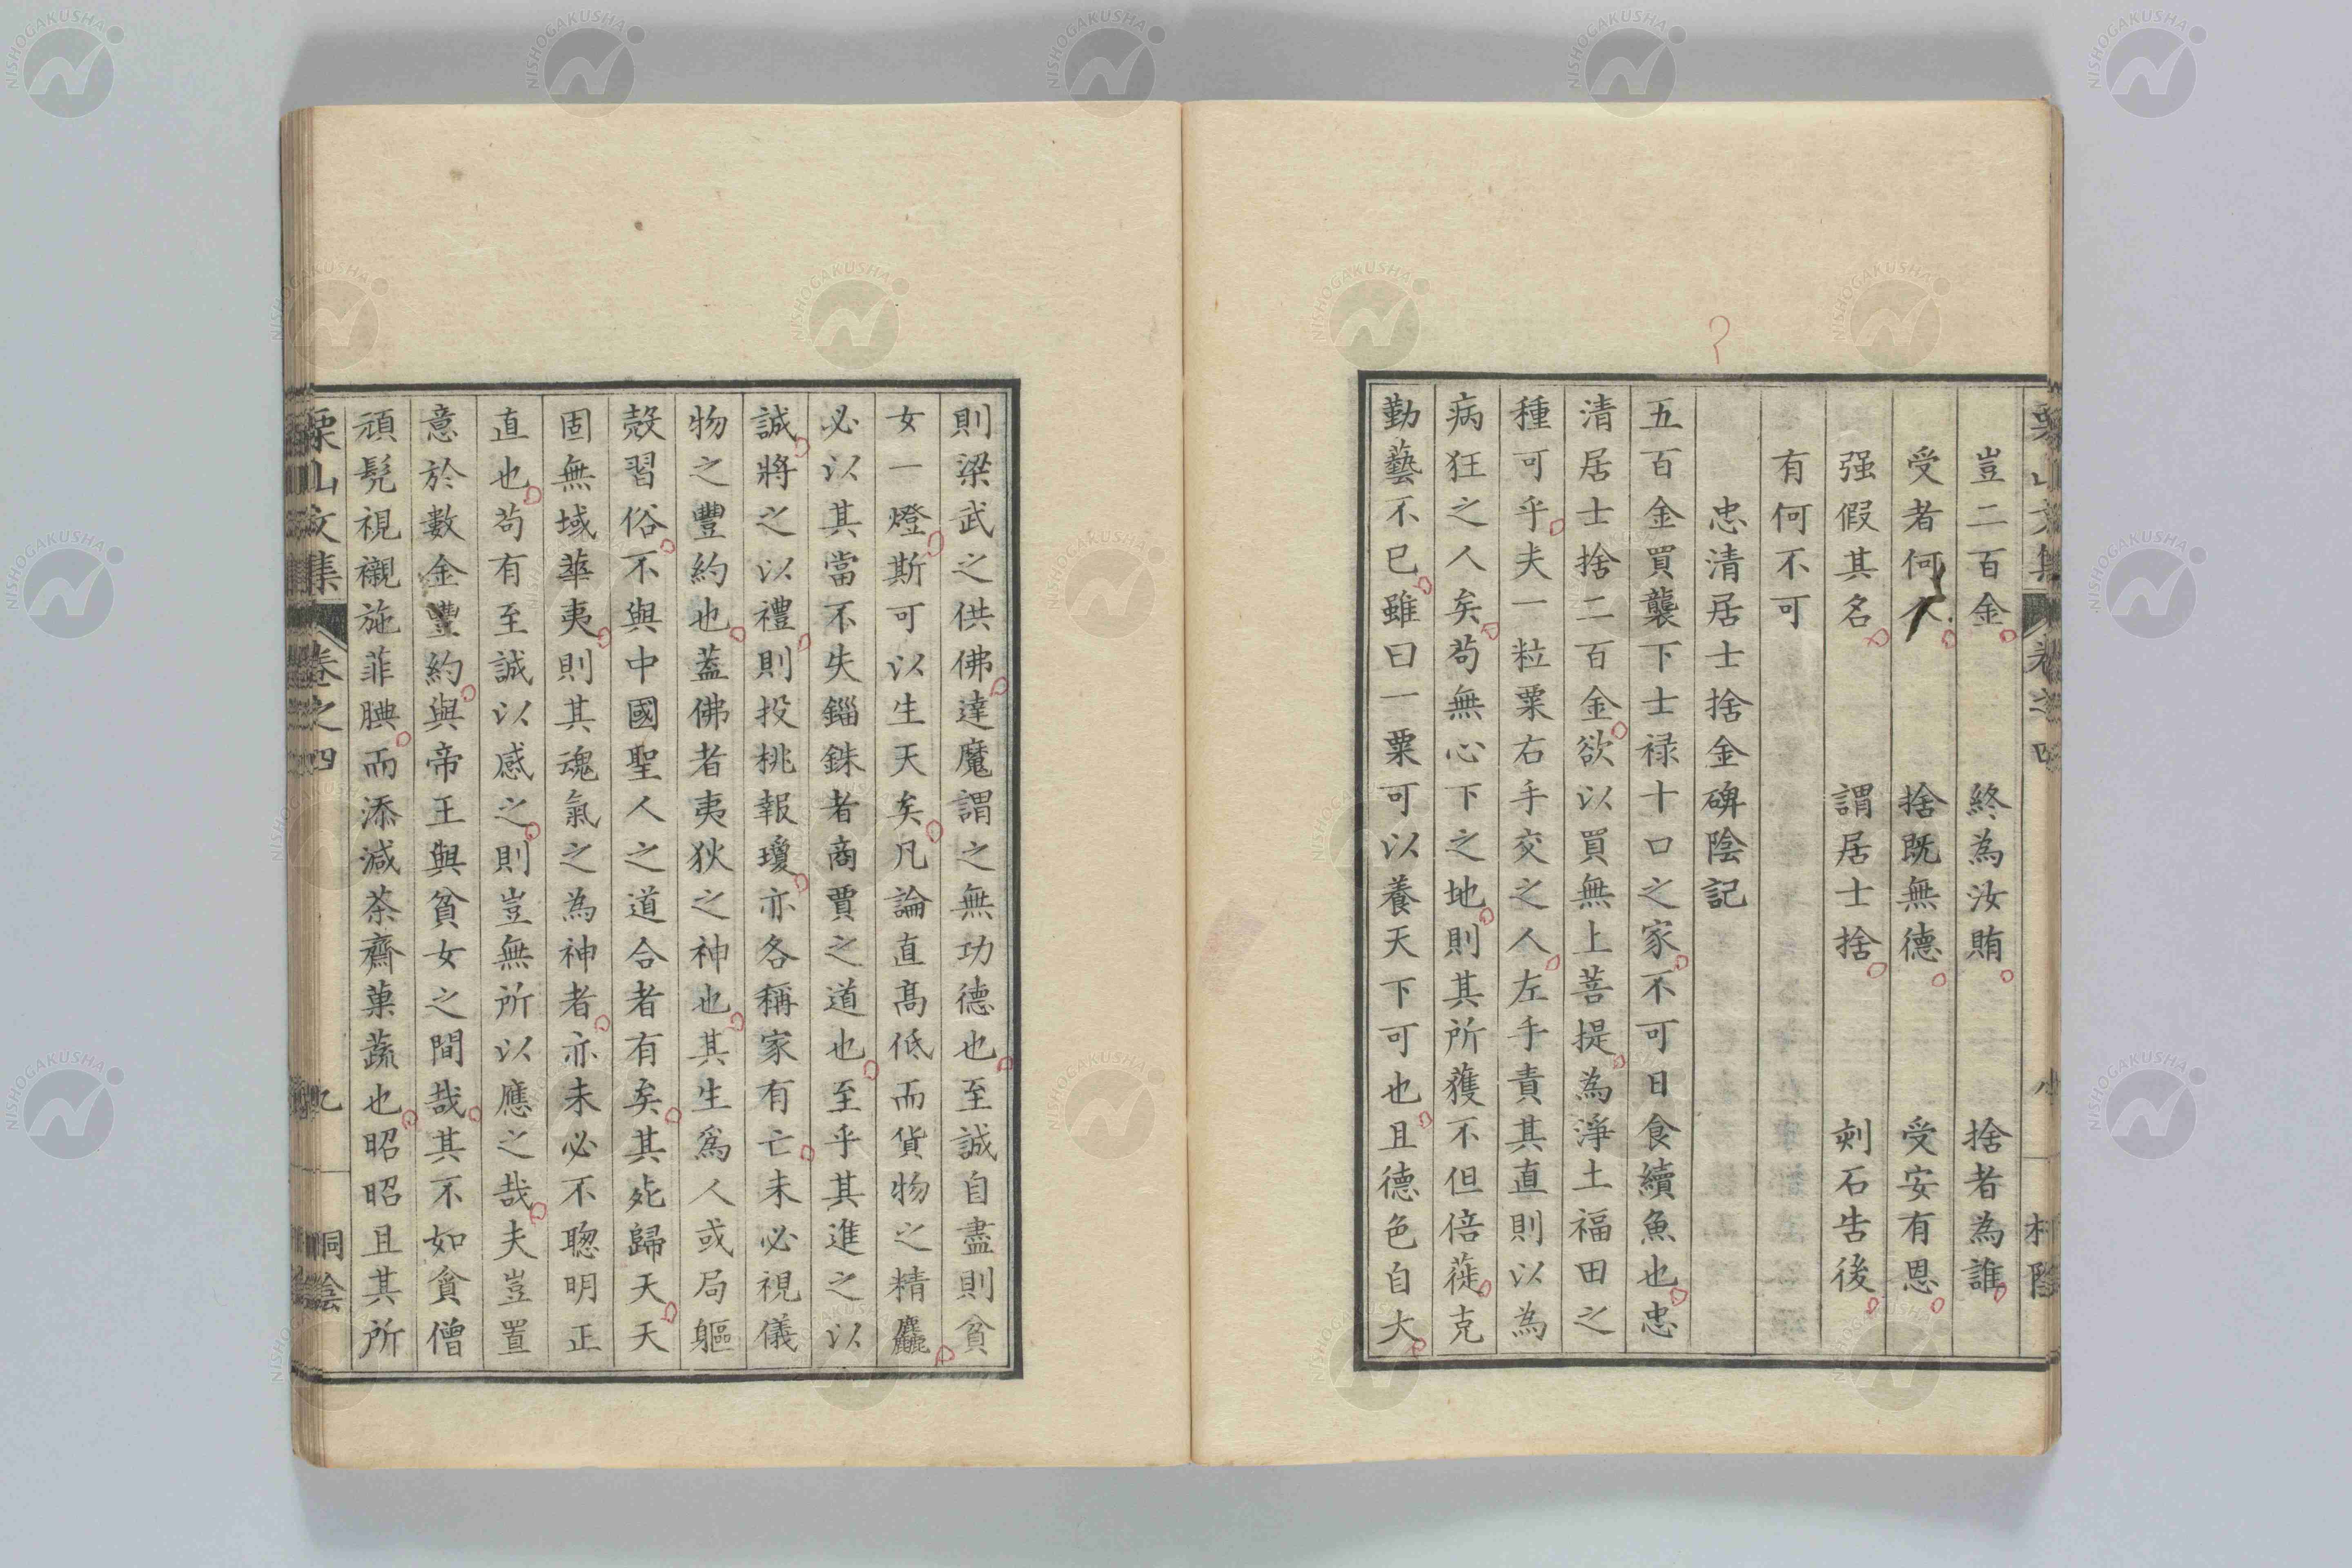 豈二百金 終為汝賄 捨者為誰
受者何人 捨既無德 受安有恩
强假其名 謂居士捨 刻石告後
有何不可
忠清居士捨金碑陰記
五百金買襲下士禄十口之家不可日食續魚也忠
清居士捨二百金欲以買無上菩提為淨土福田之
種可乎夫一粒粟右手交之人左手責其直則以為
病狂之人矣苟無心下之地則其所獲不但倍蓰克
勤藝不已雖曰一粟可以養天下可也且德色自大
則梁武之供佛達魔謂之無功德也至誠自盡則貧
女一燈斯可以生天矣凡論直高低而貨物之精麤
必以其當不失錙銖者商賈之道也至乎其進之以
誠將之以禮則投桃報瓊亦各稱家有亡未必視儀
物之豐約也蓋佛者夷狄之神也其生爲人或局軀
殼習俗不與中國聖人之道合者有矣其死歸天天
固無域華夷則其魂氣之為神者亦未必不聰明正
直也苟有至誠以感之則豈無所以應之哉夫豈置
意於數金豐約與帝王與貧女之間哉其不如貪僧
頑髡視襯施菲腆而添減茶齋菓蔬也昭昭且其所
栗山文集 卷之四 九 桐陰
NISHOGAKUSHA